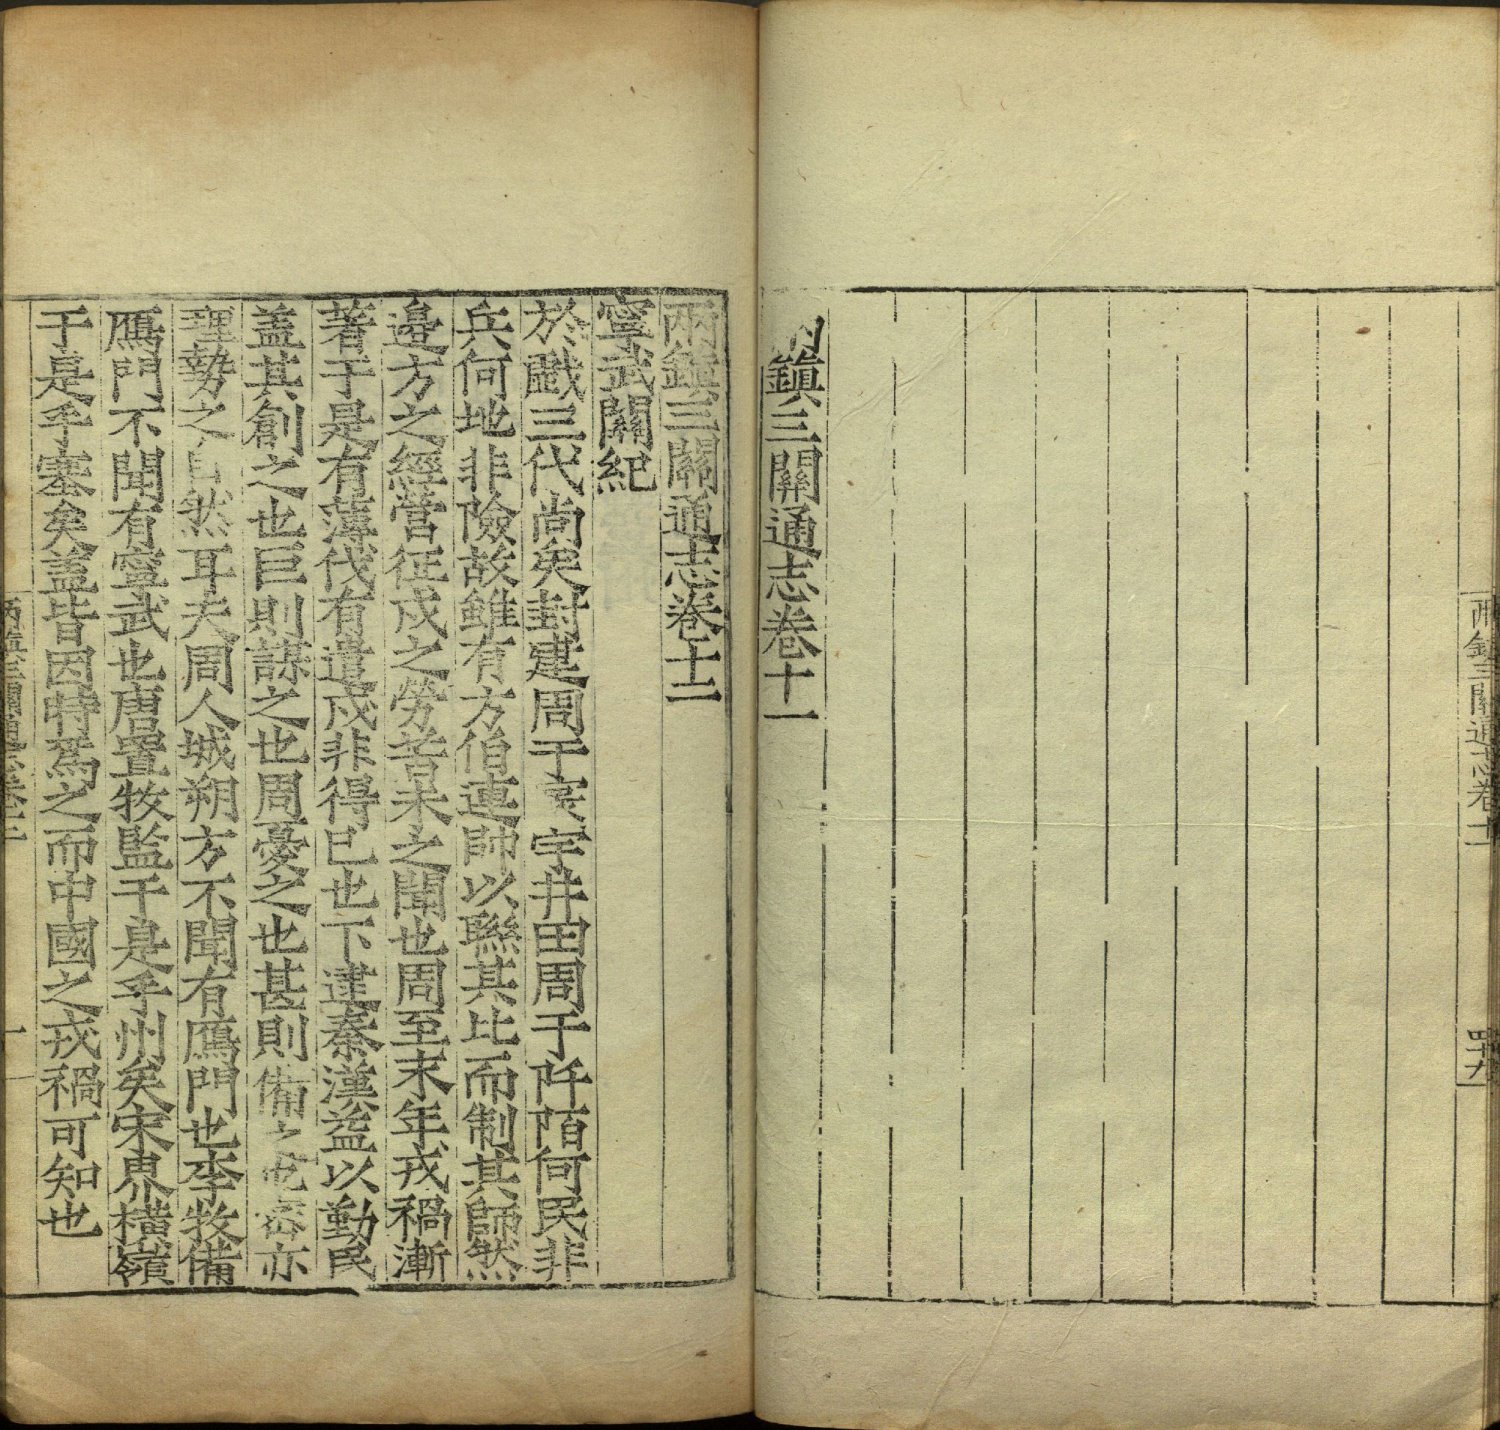 兩鎮三關通志卷十一
四十九
鎮三關通志卷十一
兩鎮三關通志卷十二
寧武關紀
於戲三代尚矣封建周于寰宇井田周于阡陌何民非
兵何地非險故雖有方伯連帥以聯其比而制其師然
邉方之經營征戍之勞苦未之聞也周至末年戎禍漸
著于是有薄伐有遣戍非得已也下逮秦漢盗以勤民
盖其創之也巨則謀之也周憂之也甚則備之也密亦
理勢之自然耳夫周人城朔方不聞有鴈門也李牧備
鴈門不聞有寧武也唐置牧監于是乎州矣宋界橫嶺
于是乎塞矣盖皆因時爲之而中國之戎禍可知也
兩鎮三關通志卷十二
一